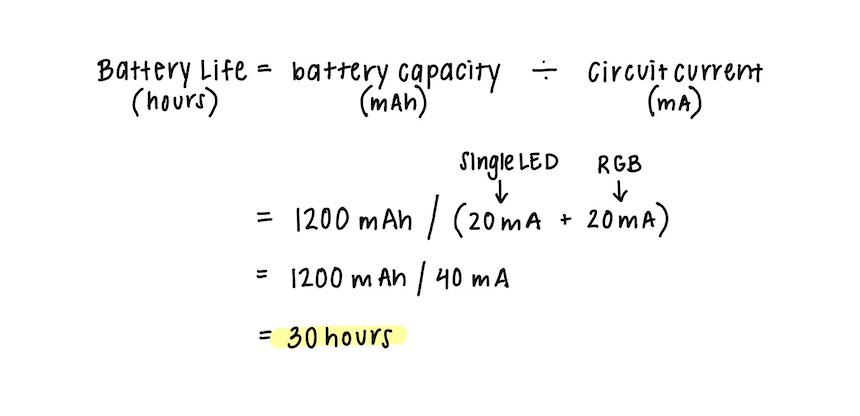 Battery Life = battery capacity ÷ circuit current
(hours) (mAh) (mA)
Single LED RGB
↓ ↓
= 1200 mAh / (20 mA + 20 mA)
= 1200 mAh / 40 mA
= 30 hours